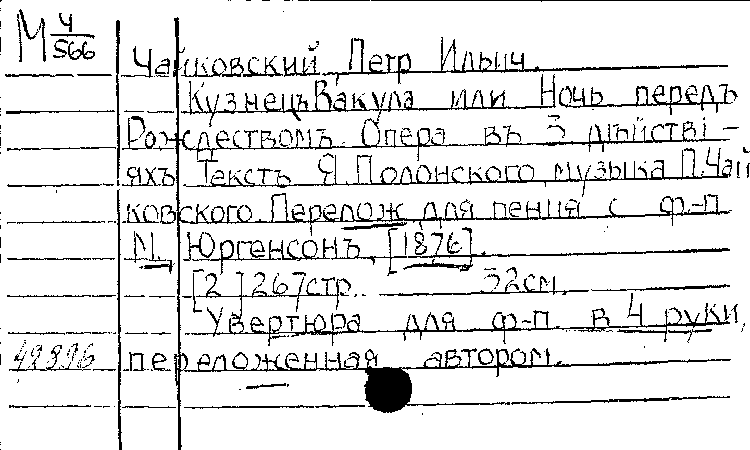 М Ч/566
Чайковский, Петр Ильич.
Кузнецъ Вакула или Ночь передъ
Рождествомъ. Опера въ 3 дѣйствi-
яхъ Текстъ Я. Полонского, музыка П. Чай
ковского. Перелож для пения с ф-п
М., Юргенсонъ, [1876].
[2] 267 стр. 32 см.
Увертюра для ф-п. в 4 руки,
49896 переложенная автором.